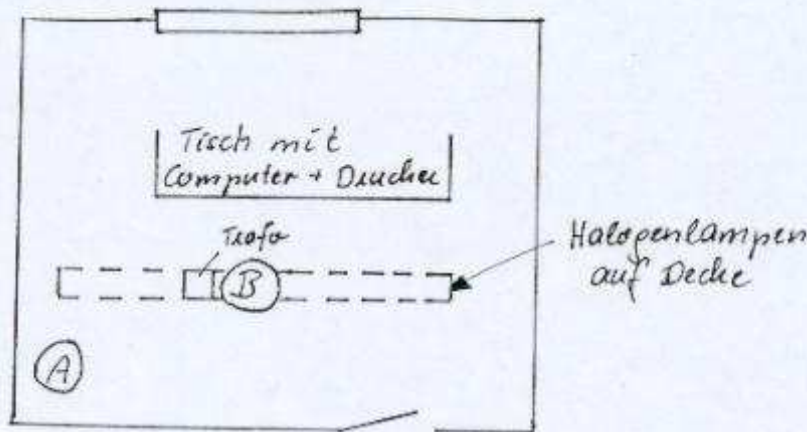 Tisch mit
Computer + Drucker
Trafo
B
Halogenlampen
auf Decke
A